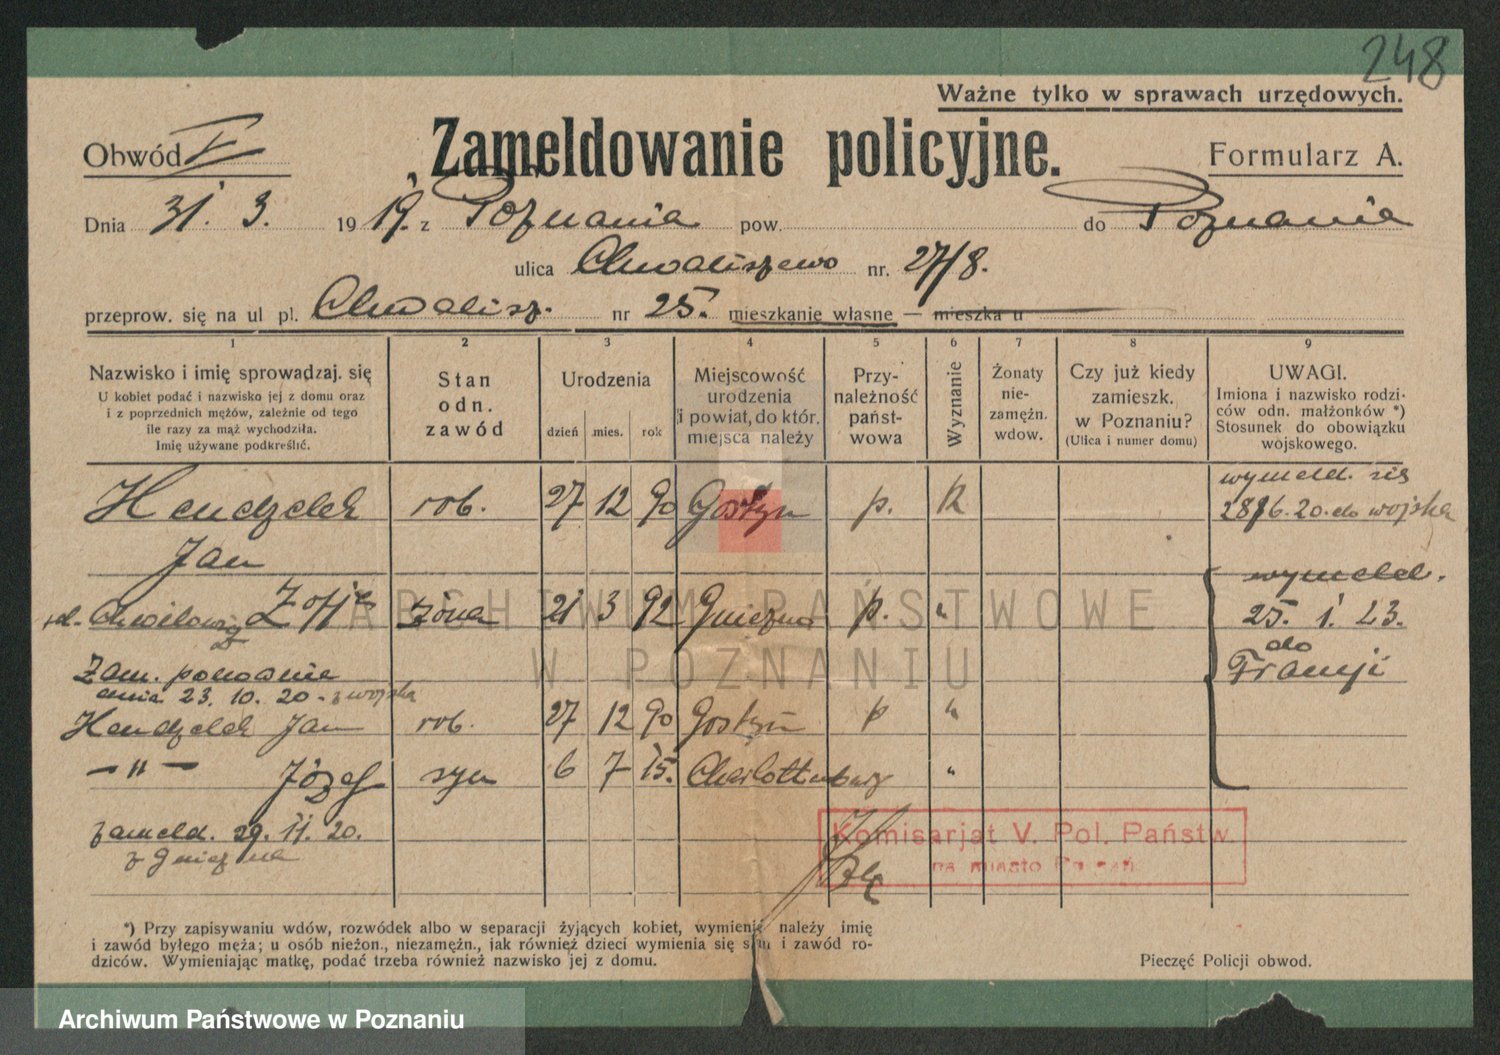 248
Ważne tylko w sprawach urzędowych.
Obwód V Zameldowanie policyjne. Formularz A.
Dnia 31. 3. 19 19. z Poznania pow. do Poznania
ulica Chwaliszewo nr. 27/8.
przeprow. się na ul pl. Chwalisz. nr 25. mieszkanie własne — mieszka u
1 2 3 4 5 6 7 8 9
Nazwisko i imię sprowadzaj. się
U kobiet podać i nazwisko jej z domu oraz
i z poprzednich mężów, zależnie od tego
ile razy za mąż wychodziła.
Imię używane podkreślić.
Stan
odn.
zawód
Urodzenia
dzień mies. rok
Miejscowość
urodzenia
i powiat, do któr.
miejsca należy
Przy-
należność
państ-
wowa
Wyznanie
Żonaty
nie-
zamężn.
wdow.
Czy już kiedy
zamieszk.
w Poznaniu?
(Ulica i numer domu)
UWAGI.
Imiona i nazwisko rodzi-
ców odn. małżonków *)
Stosunek do obowiązku
wojskowego.
Hendzelek rob. 27 12 90 Gostyn p. k wymeld. się
28/6. 20. do wojska
Jan
Zofja żona 21 3 92 Gniezno p. "
wymeld.
25. 1. 23.
do
Francji
Zam. ponownie
dnia 23. 10. 20 - z wojska
Hendzelek Jan rob. 27 12 90 Gostyn p "
— " — Józef syn 6 7 15. Charlottenburg "
zameld. 29. 11. 20.
z Gniezna
Komisarjat V. Pol. Państw.
na miasto Poznań
*) Przy zapisywaniu wdów, rozwódek albo w separacji żyjących kobiet, wymienić należy imię
i zawód byłego męża; u osób nieżon., niezamężn., jak również dzieci wymienia się stan i zawód ro-
dziców. Wymieniając matkę, podać trzeba również nazwisko jej z domu.
Pieczęć Policji obwod.
ARCHIWUM PAŃSTWOWE
W POZNANIU
Archiwum Państwowe w Poznaniu